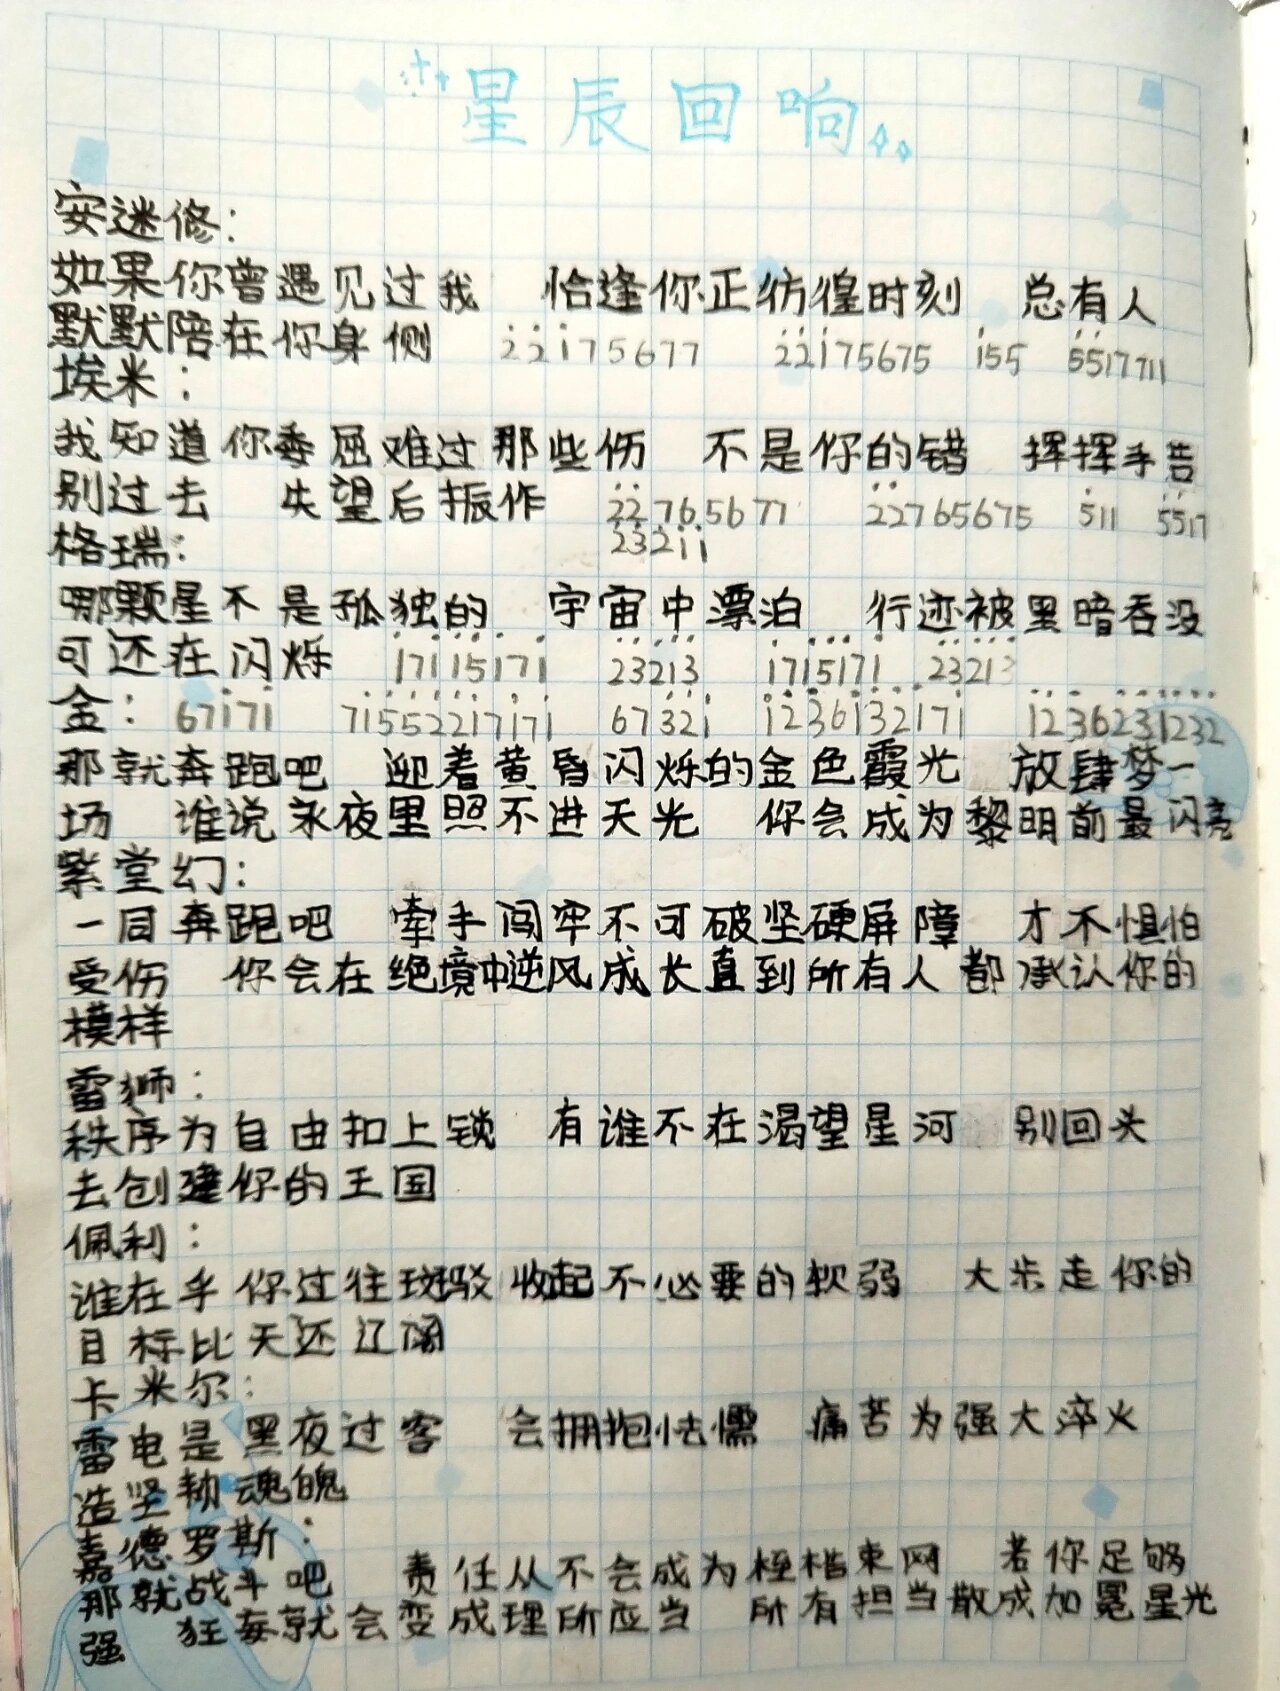 星辰回响
安迷修：
如果你曾遇见过我 恰逢你正彷徨时刻 总有人
默默陪在你身侧 22175677 22175675 155 5517711
埃米：
我知道你委屈难过那些伤 不是你的错 挥挥手告
别过去 失望后振作 22765677 22765675 511 5517
格瑞： 23211
哪颗星不是孤独的 宇宙中漂泊 行迹被黑暗吞没
可还在闪烁 17115171 23213 1715171 23213
金：67171 71552217171 67321 1236132171 1236231232
那就奔跑吧 迎着黄昏闪烁的金色霞光 放肆梦一
场 谁说永夜里照不进天光 你会成为黎明前最闪亮
紫堂幻：
一同奔跑吧 牵手闯牢不可破坚硬屏障 才不惧怕
受伤 你会在绝境中逆风成长直到所有人都承认你的
模样
雷狮：
秩序为自由扣上锁 有谁不在渴望星河 别回头
去创建你的王国
佩利：
谁在乎你过往斑驳 收起不必要的软弱 大步走你的
目标比天还辽阔
卡米尔：
雷电是黑夜过客 会拥抱怯懦 痛苦为强大淬火
造坚韧魂魄
嘉德罗斯：
那就战斗吧 责任从不会成为桎梏束网 若你足够
强 狂妄就会变成理所应当 所有担当散成加冕星光